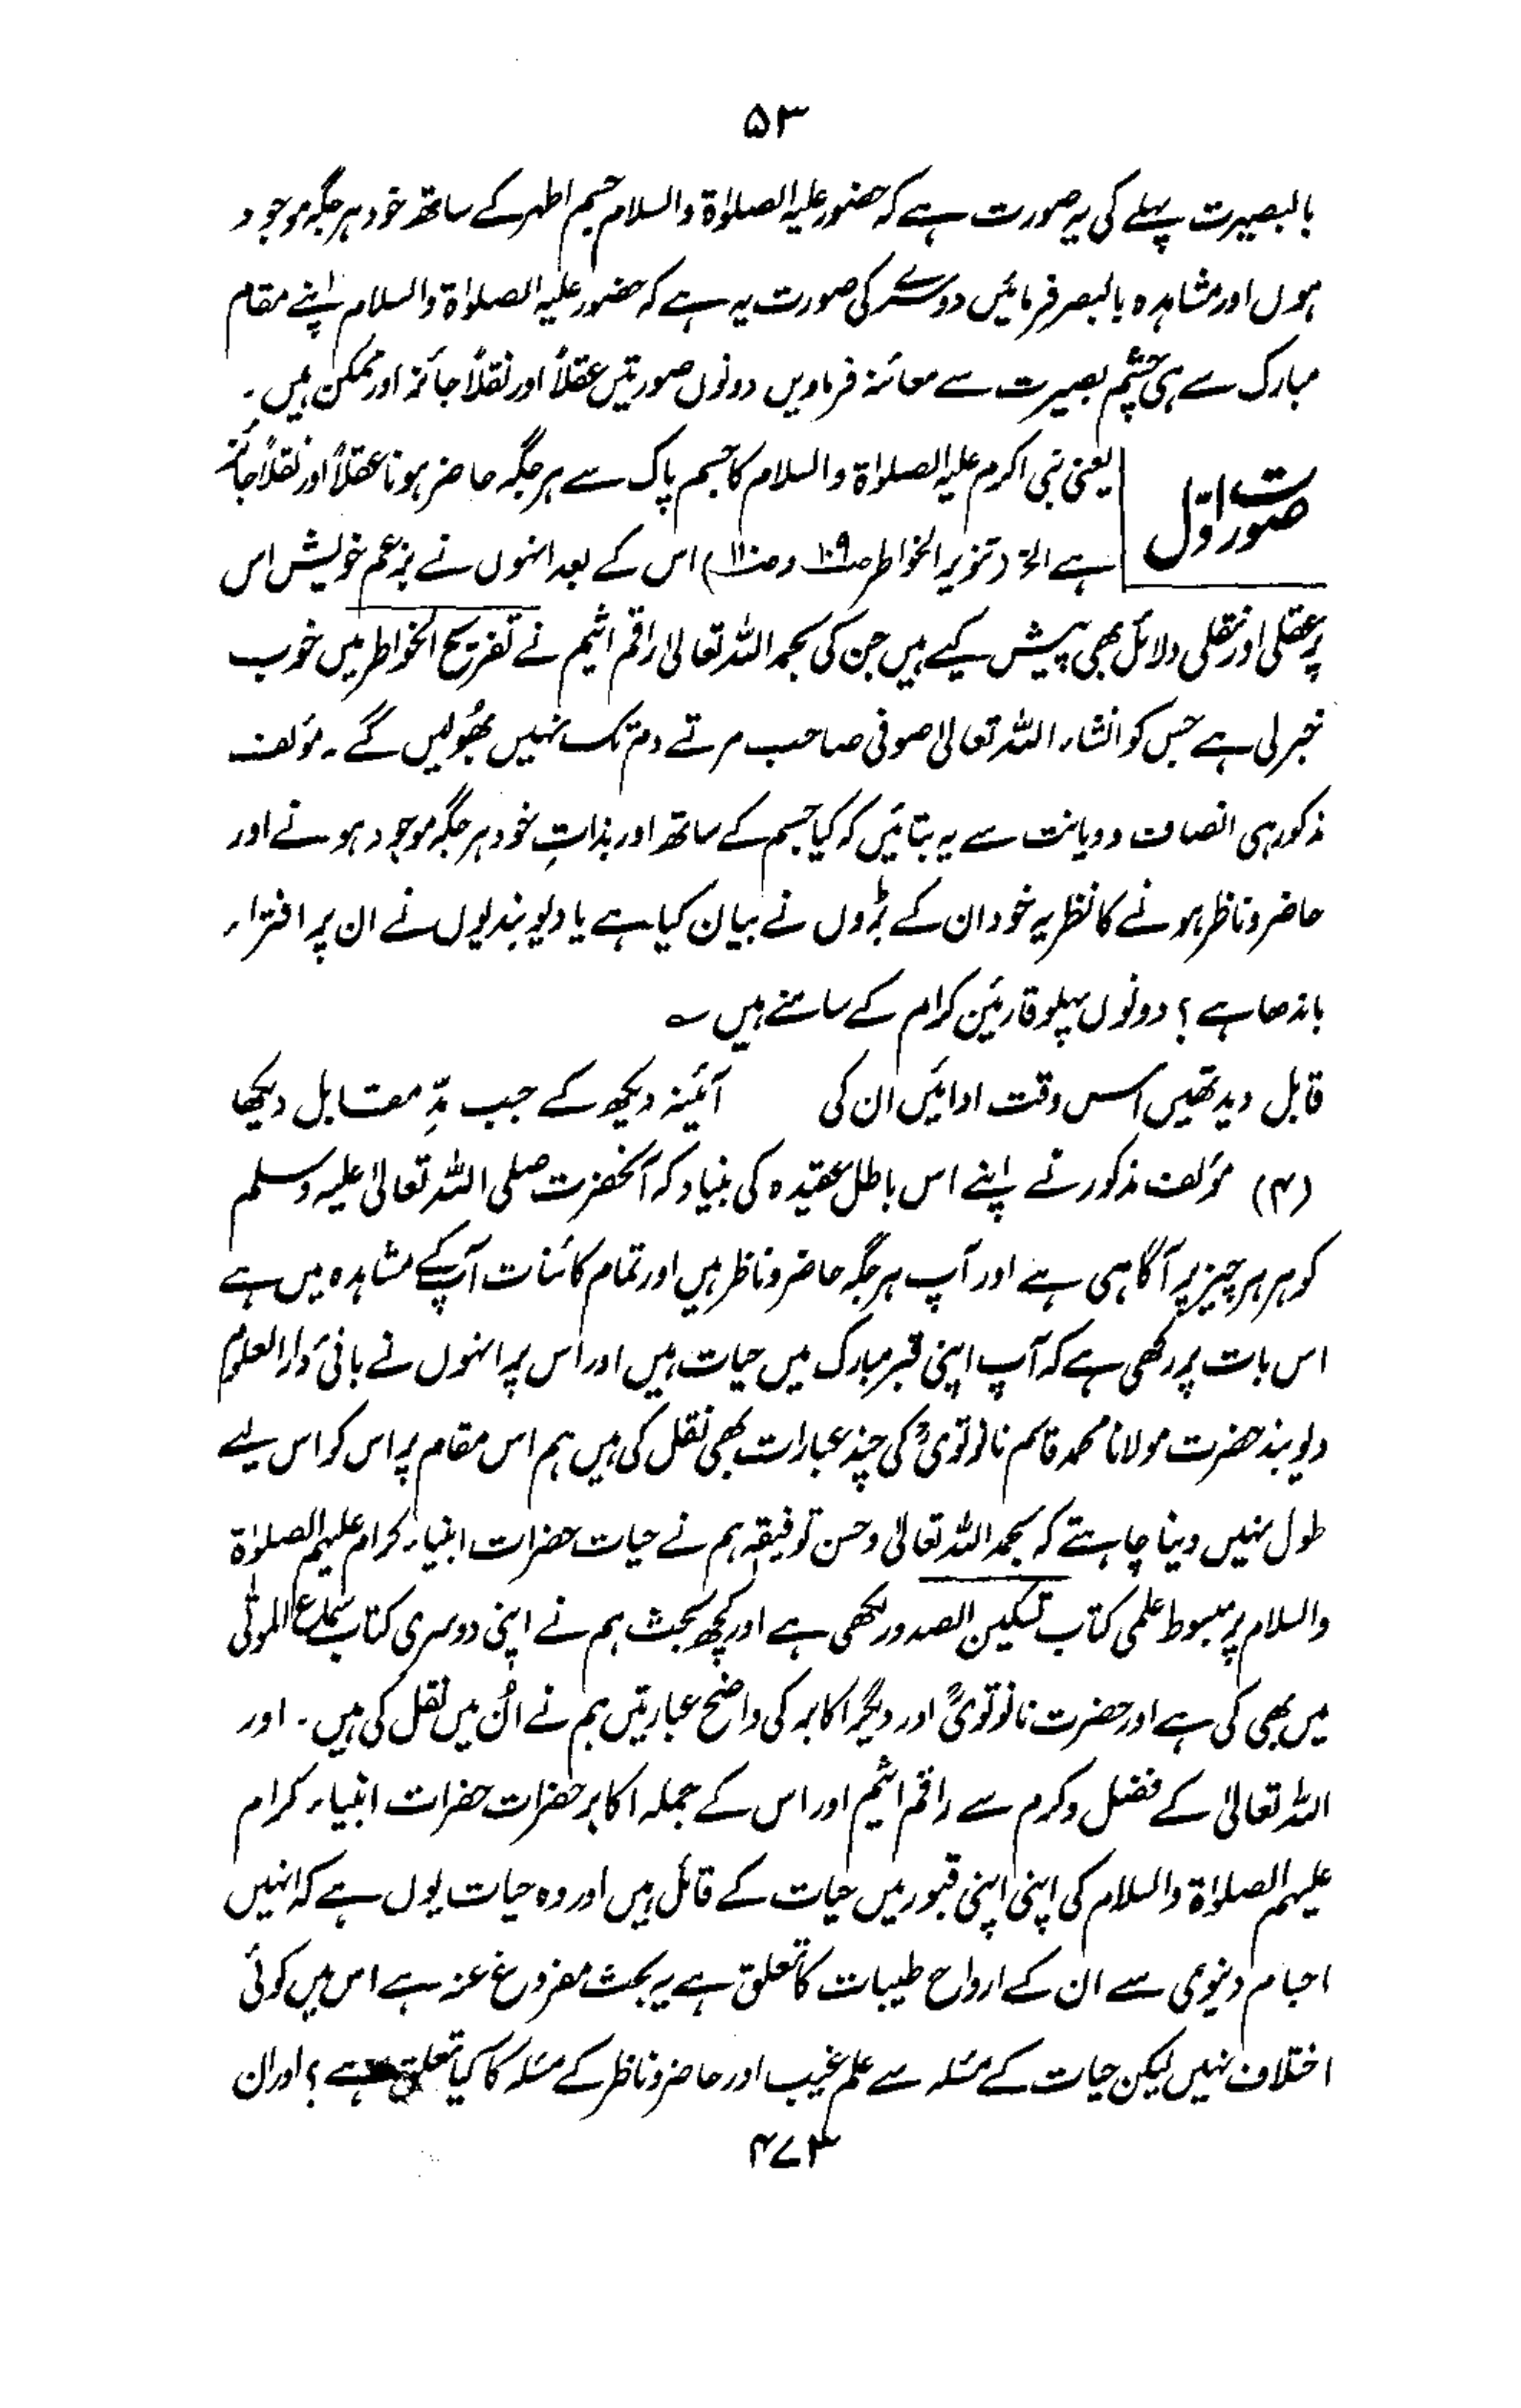 ۵۳
بالبصیرت پہلے کی یہ صورت ہے کہ حضور علیہ الصلوٰۃ والسلام جسم اطہر کے ساتھ خود ہر جگہ موجود
ہوں اور مشاہدہ بالبصر فرمائیں دوسرے کی صورت یہ ہے کہ حضور علیہ الصلوٰۃ والسلام اپنے مقام
مبارک سے ہی چشم بصیرت سے معائنہ فرماویں دونوں صورتیں عقلاً اور نقلاً جائز اور ممکن ہیں۔
صورت اوّل
یعنی نبی اکرم علیہ الصلوٰۃ والسلام کا جسم پاک سے ہر جگہ حاضر ہونا عقلاً اور نقلاً جائز
ہے الخ (تنویر الخواطر ص۱۰۹ و ص۱۱۰) اس کے بعد انہوں نے بزعم خویش اس
پر عقلی اور نقلی دلائل بھی پیش کیے ہیں جن کی بحمد اللہ تعالیٰ راقم اثیم نے تفریح الخواطر میں خوب
خبر لی ہے جس کو انشاء اللہ تعالیٰ صوفی صاحب مرتے دم تک نہیں بھُولیں گے۔ مؤلف
مذکور ہی انصاف و دیانت سے یہ بتائیں کہ کیا جسم کے ساتھ اور بذاتِ خود ہر جگہ موجود ہونے اور
حاضر و ناظر ہونے کا نظریہ خود ان کے بڑوں نے بیان کیا ہے یا دیوبندیوں نے ان پر افتراء
باندھا ہے؟ دونوں پہلو قارئین کرام کے سامنے ہیں ؎
قابل دید تھیں اسس وقت ادائیں ان کی آئینہ دیکھ کے جب مدِّ مقابل دیکھا
(۴) مؤلف مذکور نے اپنے اس باطل عقیدہ کی بنیاد کہ آنحضرت صلی اللہ تعالیٰ علیہ وسلم
کو ہر ہر چیز پر آگاہی ہے اور آپ ہر جگہ حاضر و ناظر ہیں اور تمام کائنات آپ کے مشاہدہ میں ہے
اس بات پر رکھی ہے کہ آپ اپنی قبر مبارک میں حیات ہیں اور اس پر انہوں نے بانیٔ دار العلوم
دیوبند حضرت مولانا محمد قاسم نانوتویؒ کی چند عبارات بھی نقل کی ہیں ہم اس مقام پر اس کو اس لیے
طول نہیں دینا چاہتے کہ بحمد اللہ تعالیٰ وحسن توفیقہ ہم نے حیات حضرات انبیاء کرام علیہم الصلوٰۃ
والسلام پر مبسوط علمی کتاب تسکین الصدور لکھی ہے اور کچھ بحث ہم نے اپنی دوسری کتاب سماع الموتٰی
میں بھی کی ہے اور حضرت نانوتویؒ اور دیگر اکابر کی واضح عبارتیں ہم نے اُن میں نقل کی ہیں۔ اور
اللہ تعالیٰ کے فضل و کرم سے راقم اثیم اور اس کے جملہ اکابر حضرات حضرات انبیاء کرام
علیہم الصلوٰۃ والسلام کی اپنی اپنی قبور میں حیات کے قائل ہیں اور وہ حیات یوں ہے کہ انہیں
اجسام دنیوی سے ان کے ارواح طیبات کا تعلق ہے یہ بحث مفروغ عنہ ہے اس میں کوئی
اختلاف نہیں لیکن حیات کے مسئلہ سے علم غیب اور حاضر و ناظر کے مسئلہ کا کیا تعلق ہے؟ اور ان
۴۷۳